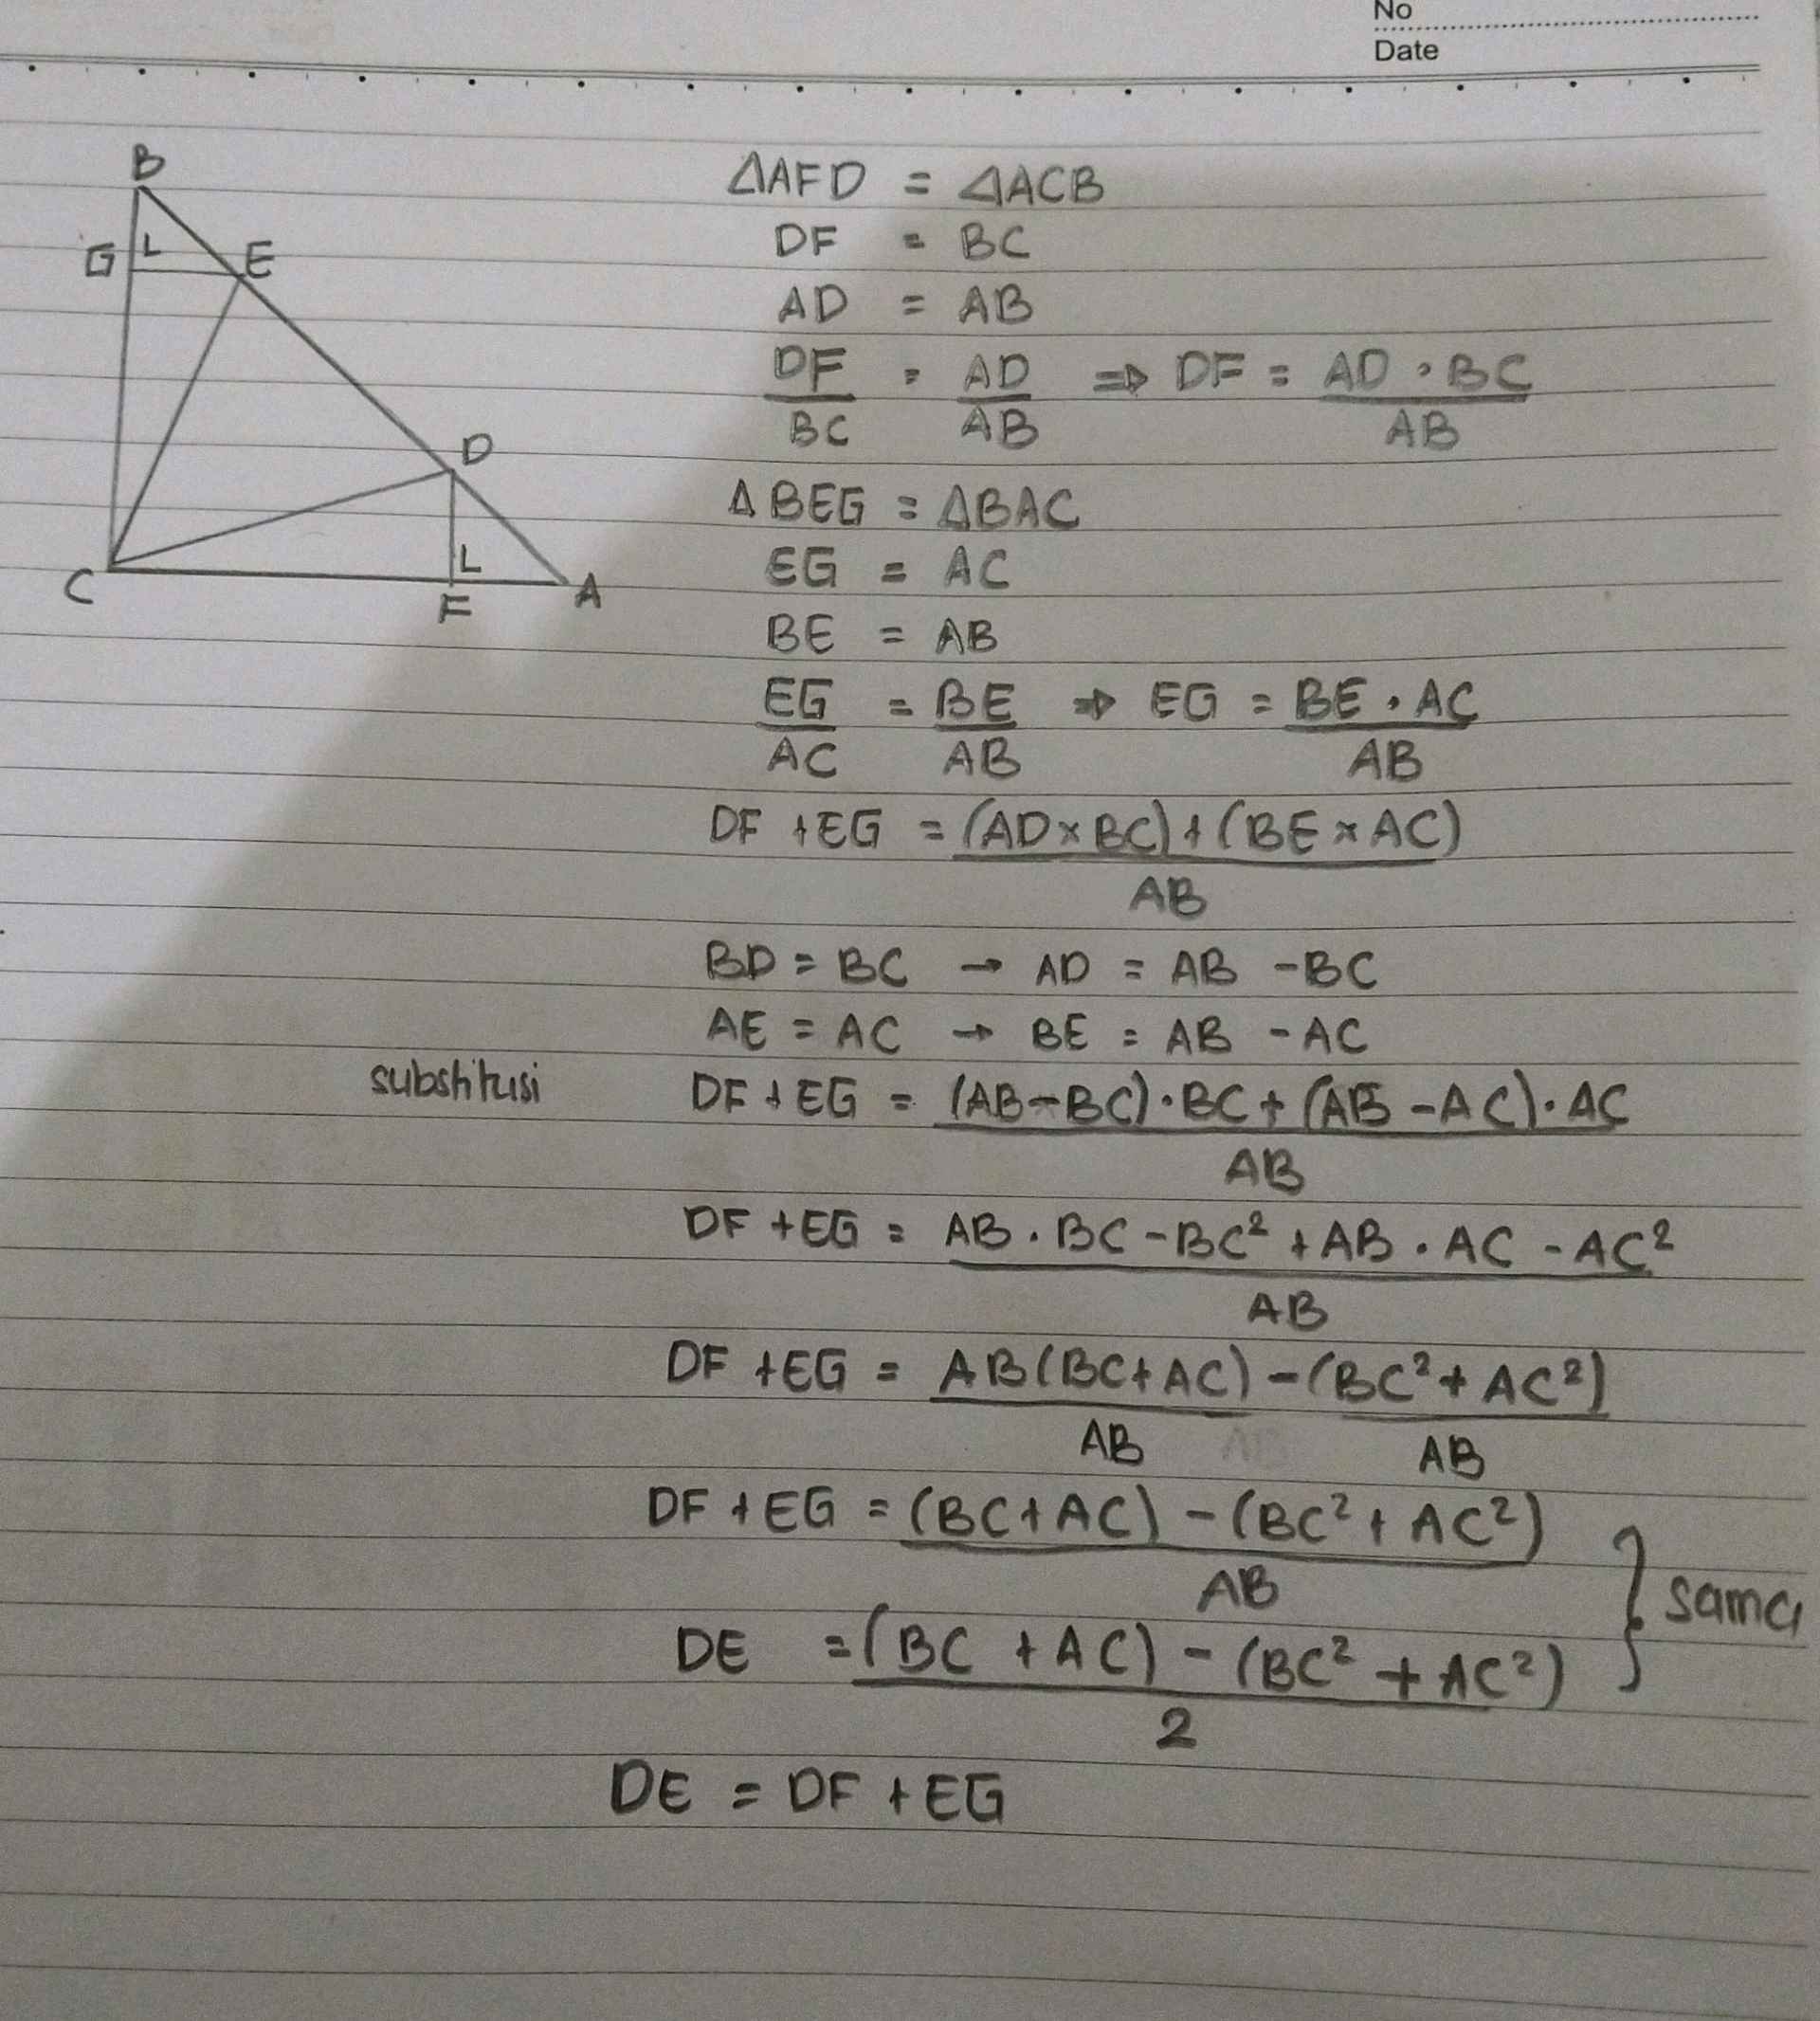 No
Date
B
G
E
D
C
F
A
ΔAFD = ΔACB
DF = BC
AD = AB
DF/BC = AD/AB ⇒ DF = AD · BC/AB
ΔBEG = ΔBAC
EG = AC
BE = AB
EG/AC = BE/AB ⇒ EG = BE · AC/AB
DF + EG = (AD × BC) + (BE × AC)/AB
BD = BC → AD = AB - BC
AE = AC → BE = AB - AC
substitusi DF + EG = (AB - BC) · BC + (AB - AC) · AC/AB
DF + EG = AB · BC - BC² + AB · AC - AC²/AB
DF + EG = AB(BC + AC)/AB - (BC² + AC²)/AB
DF + EG = (BC + AC) - (BC² + AC²)/AB
DE = (BC + AC) - (BC² + AC²)/2
} sama
DE = DF + EG